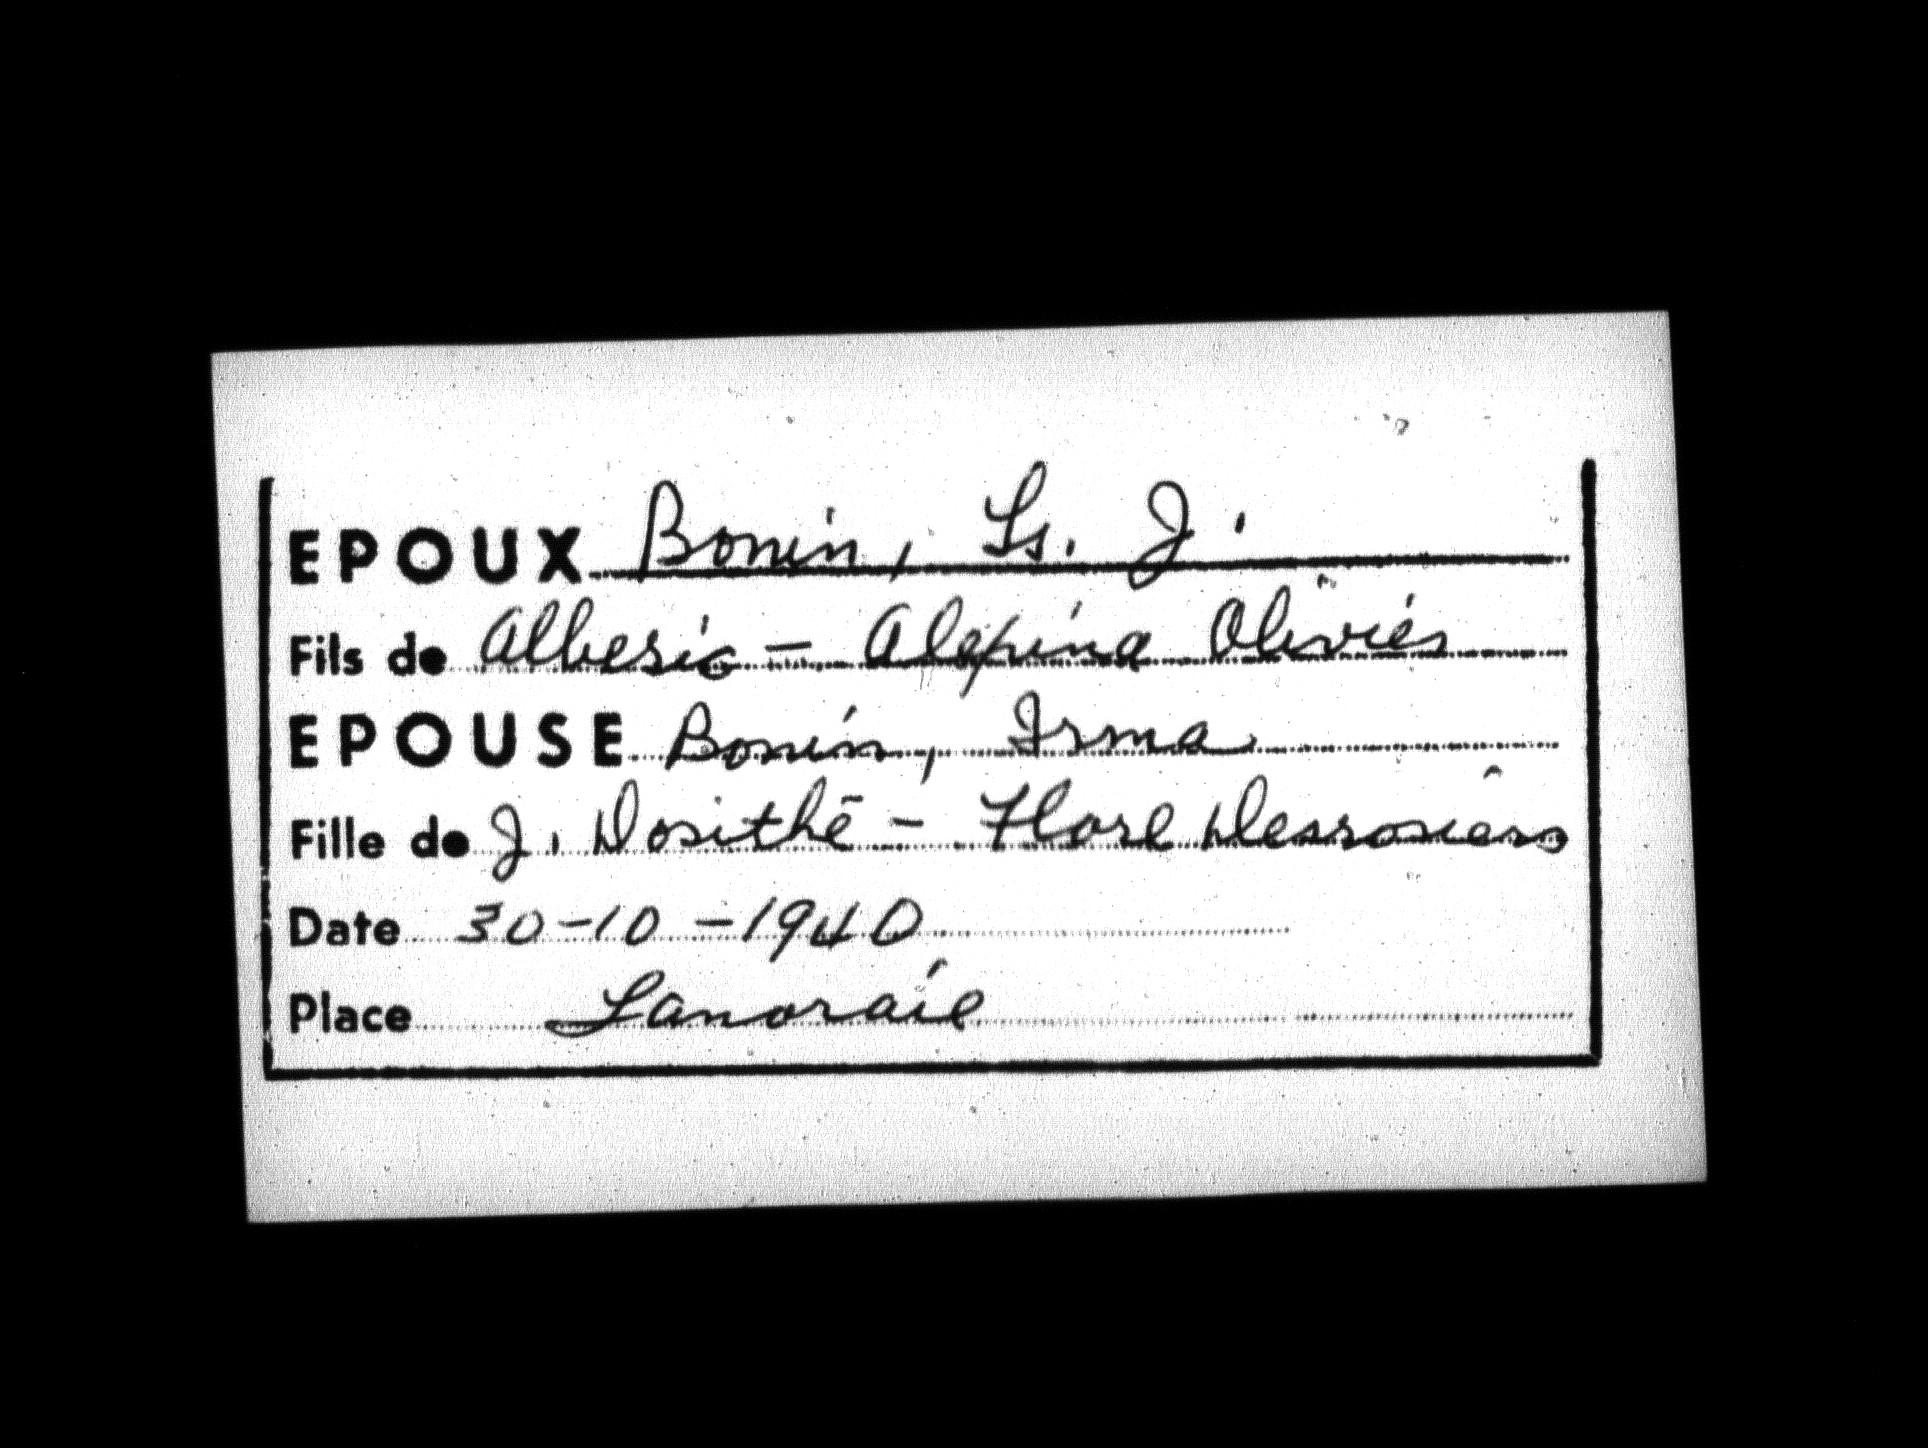 EPOUX Bonin, Ls. J.
Fils de Alberic - Alepina Olivier
EPOUSE Bonin, Irma
Fille de J. Dosithé - Flore Desrosiers
Date 30-10-1940
Place Lanoraie